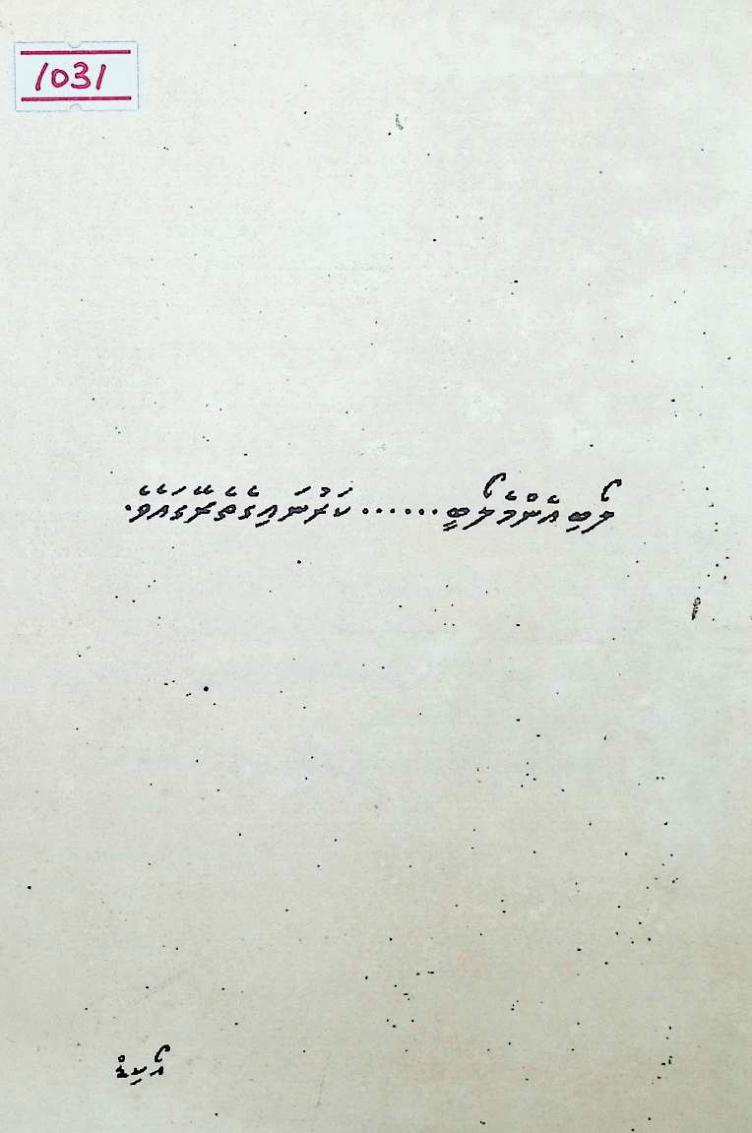 1031
ލޯބި އެންމެ ލޯބީ...... ކަރުނައިގެ ތެރޭގައެވެ.
އޯކިޑް